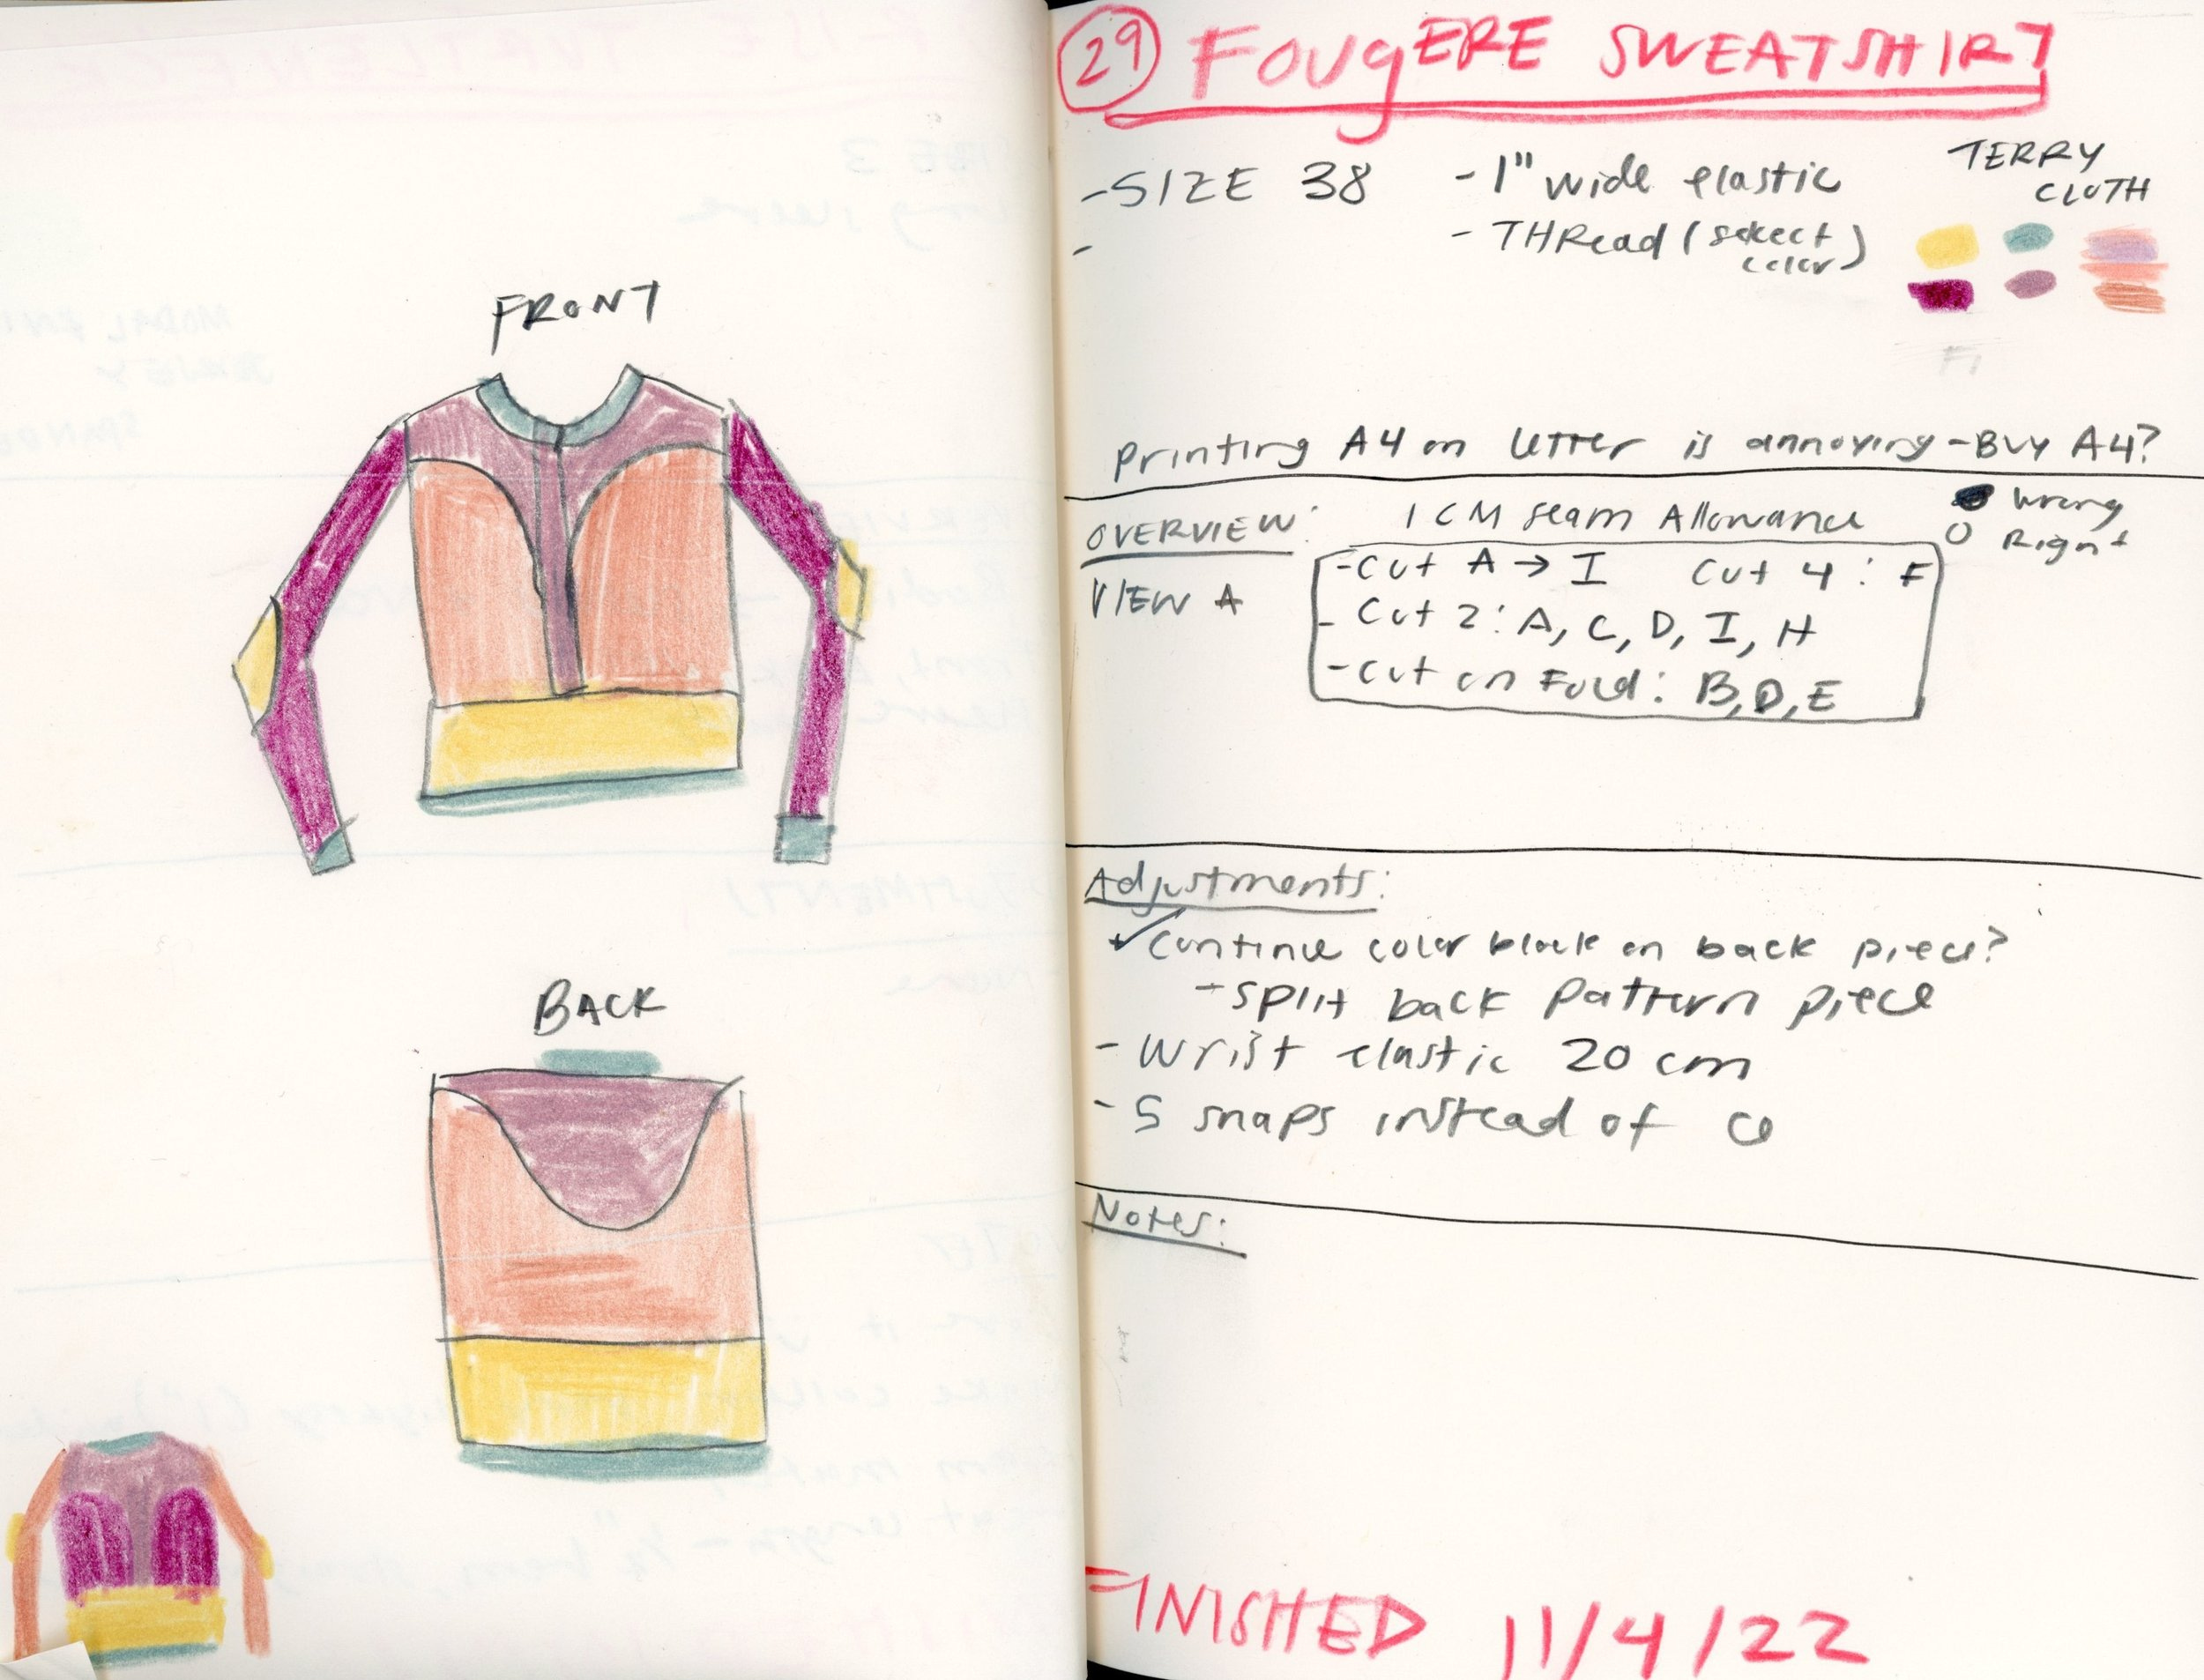 FRONT
BACK
29 FOUgERE SWEATSHIRT
-SIZE 38
-
- 1" wide elastic
- THRead (select color)
TERRY
CLOTH
printing A4 on letter is annoying - BUY A4?
OVERVIEW: 1 CM seam Allowance
wrong
Right
VIEW A
-Cut A → I Cut 4: F
- Cut 2: A, C, D, I, H
-Cut on Fold: B, D, E
Adjustments:
Continue color block on back piece?
- split back pattern piece
- Wrist elastic 20 cm
- 5 snaps instead of
Notes:
FINISHED 11/4/22